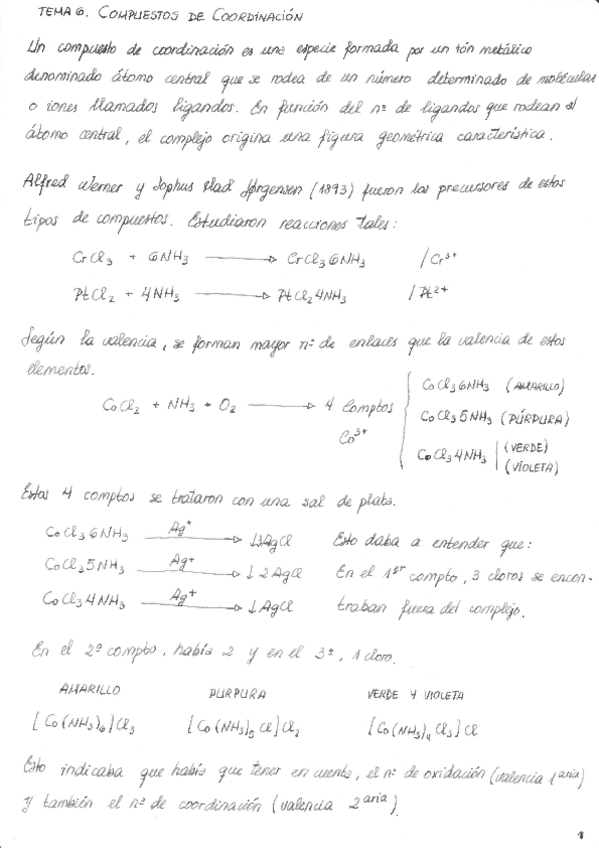 TEMA 6. COMPUESTOS DE COORDINACIÓN
Un compuesto de coordinación es una especie formada por un ión metálico
denominado átomo central que se rodea de un número determinado de moléculas
o iones llamados ligandos. En función del nº de ligandos que rodean al
átomo central, el complejo origina una figura geométrica característica.
Alfred Werner y Sophus Mad Jørgensen (1893) fueron los precursores de estos
tipos de compuestos. Estudiaron reacciones tales:
CrCl3 + 6NH3 → CrCl3 6NH3 / Cr3+
PtCl2 + 4NH3 → PtCl2 4NH3 / Pt2+
Según la valencia, se forman mayor nº de enlaces que la valencia de estos
elementos.
CoCl2 + NH3 + O2 → 4 Comptos
Co3+
CoCl3 6NH3 (AMARILLO)
CoCl3 5NH3 (PÚRPURA)
CoCl3 4NH3 (VERDE)
(VIOLETA)
Estos 4 comptos se trataron con una sal de plata.
CoCl3 6NH3 Ag+ → ↓3AgCl Esto daba a entender que:
CoCl3 5NH3 Ag+ → ↓2AgCl En el 1er compto, 3 cloros se encon-
CoCl3 4NH3 Ag+ → ↓AgCl traban fuera del complejo.
En el 2º compto, había 2 y en el 3º, 1 cloro.
AMARILLO PURPURA VERDE Y VIOLETA
[Co(NH3)6]Cl3 [Co(NH3)5 Cl]Cl2 [Co(NH3)4 Cl2]Cl
Esto indicaba que había que tener en cuenta, el nº de oxidación (valencia 1aria)
y también el nº de coordinación (valencia 2aria).
1